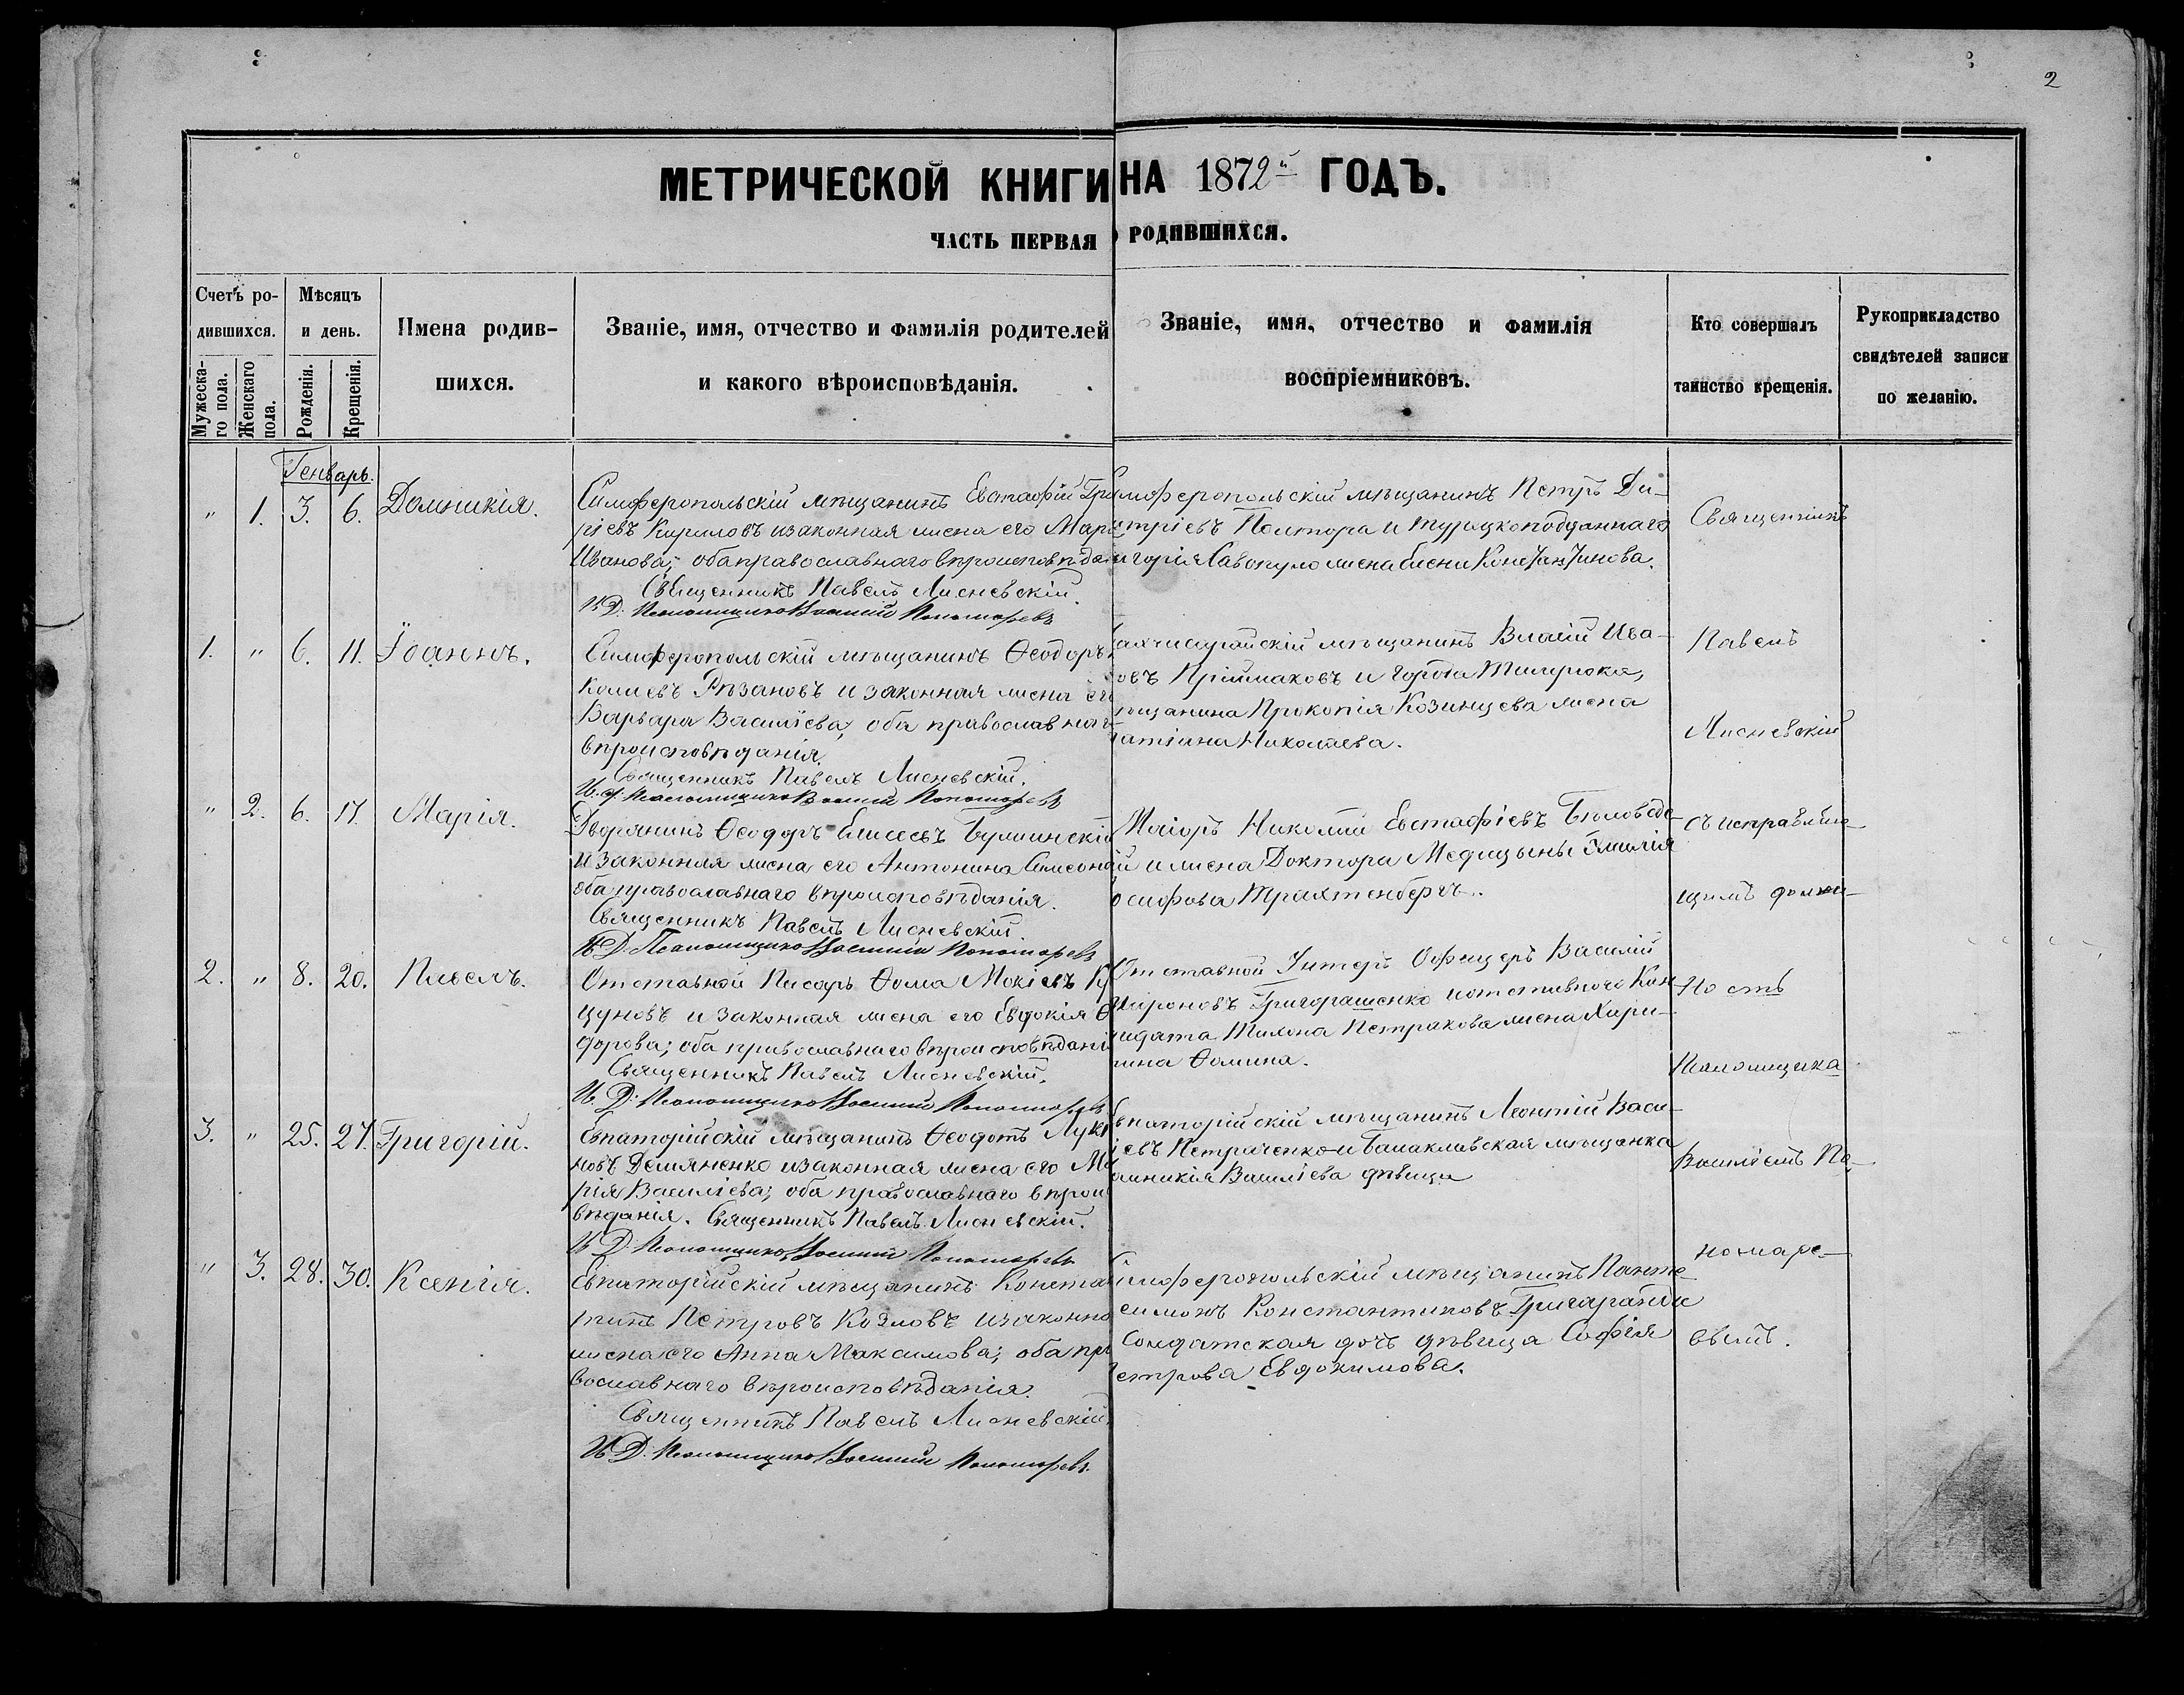 2
МЕТРИЧЕСКОЙ КНИГИ НА 1872й ГОДЪ.
ЧАСТЬ ПЕРВАЯ О РОДИВШИХСЯ.
Счетъ ро-
дившихся.
Мужеска-
го пола.
Женскаго
пола.
Мѣсяцъ
и день.
Рожденія.
Крещенія.
Имена родив-
шихся.
Званіе, имя, отчество и фамилія родителей
и какого вѣроисповѣданія.
Званіе, имя, отчество и фамилія
воспріемниковъ.
Кто совершалъ
таинство крещенія.
Рукоприкладство
свидѣтелей записи
по желанію.
Генварь.
" 1. 3. 6. Домникія.
Симферопольскій мѣщанинъ Евстафій Гри
ріевъ Кириловъ изаконная жена его Мар
Иванова; оба православнаго вѣроисповѣда
Священникъ Павелъ Лисневскій.
И.Д. Псаломщика Василій Пономаревъ
имферопольскій мѣщанинъ Петръ Ди-
итріевъ Полтора и турецкоподданнаго
игорія Савопуло жена Константинова.
Священникъ
1. " 6. 11. Іоаннъ.
Симферопольскій мѣщанинъ Ѳеодоръ
колаевъ Рѣзановъ и законная жена его
Варвара Васильева, оба православнаг
вѣроисповѣданія.
Священникъ Павелъ Лисневскій.
И.д. Псаломщика Василій Пономаревъ
ахчисарайскій мѣщанинъ Власій Ива-
овъ Пріймаковъ и города Темрюка,
ѣщанина Прокопія Козинцева жена
атіяна Николаева.
Павелъ
Лисневскій
" 2. 6. 17. Марія.
Дворянинъ Ѳеодоръ Елисеевъ
и законная жена его Антонина Симеона
оба православнаго вѣроисповѣданія.
Священникъ Павелъ Лисневскій
И.Д. Псаломщика Василій Пономаревъ
Маіоръ Николай Евстафіевъ
й и жена Доктора Медицыны Эмилія
осифова Трахтенбергъ.
съ исправляю-
щимъ долж-
2. " 8. 20. Павелъ.
Отставной Писарь Ѳома Мокіевъ Ку
цуновъ и законная жена его Евдокія Ѳ
дорова; оба православнаго вѣроисповѣдані
Священникъ Павелъ Лисневскій.
И.Д. Псаломщика Василій Пономаревъ
Отставной Унтеръ Офицеръ Василій
мироновъ Григорашенко иотставного Кан
идата Тихона Петракова жена Хари-
тина Ѳомина.
ность
Псаломщика
3. " 25. 27. Григорій.
Евпаторійскій мѣщанинъ Ѳеодотъ Луки
новъ Демяненко изаконная жена его Ма
рія Василіева; оба православнаго вѣрои
вѣданія. Священникъ Павелъ Лисневскій.
И.Д. Псаломщика Василій Пономаревъ
впаторійскій мѣщанинъ Леонтій Васи-
іевъ Петриченко и Балаклавская мѣщанка
омникія Василіева дѣвица
Василіемъ По-
номаре-
" 3. 28. 30. Ксенія.
Евпаторійскій мѣщанинъ Конста
тинъ Петровъ Козловъ изаконна
жена его Анна Максимова; оба пра
вославнаго вѣроисповѣданія.
Священникъ Павелъ Лисневскій.
И.Д. Псаломщика Василій Пономаревъ.
имферопольскій мѣщанинъ Панте-
еимонъ Константиновъ
Солдатская дочь дѣвица Софія
етрова Евдокимова.
вымъ.